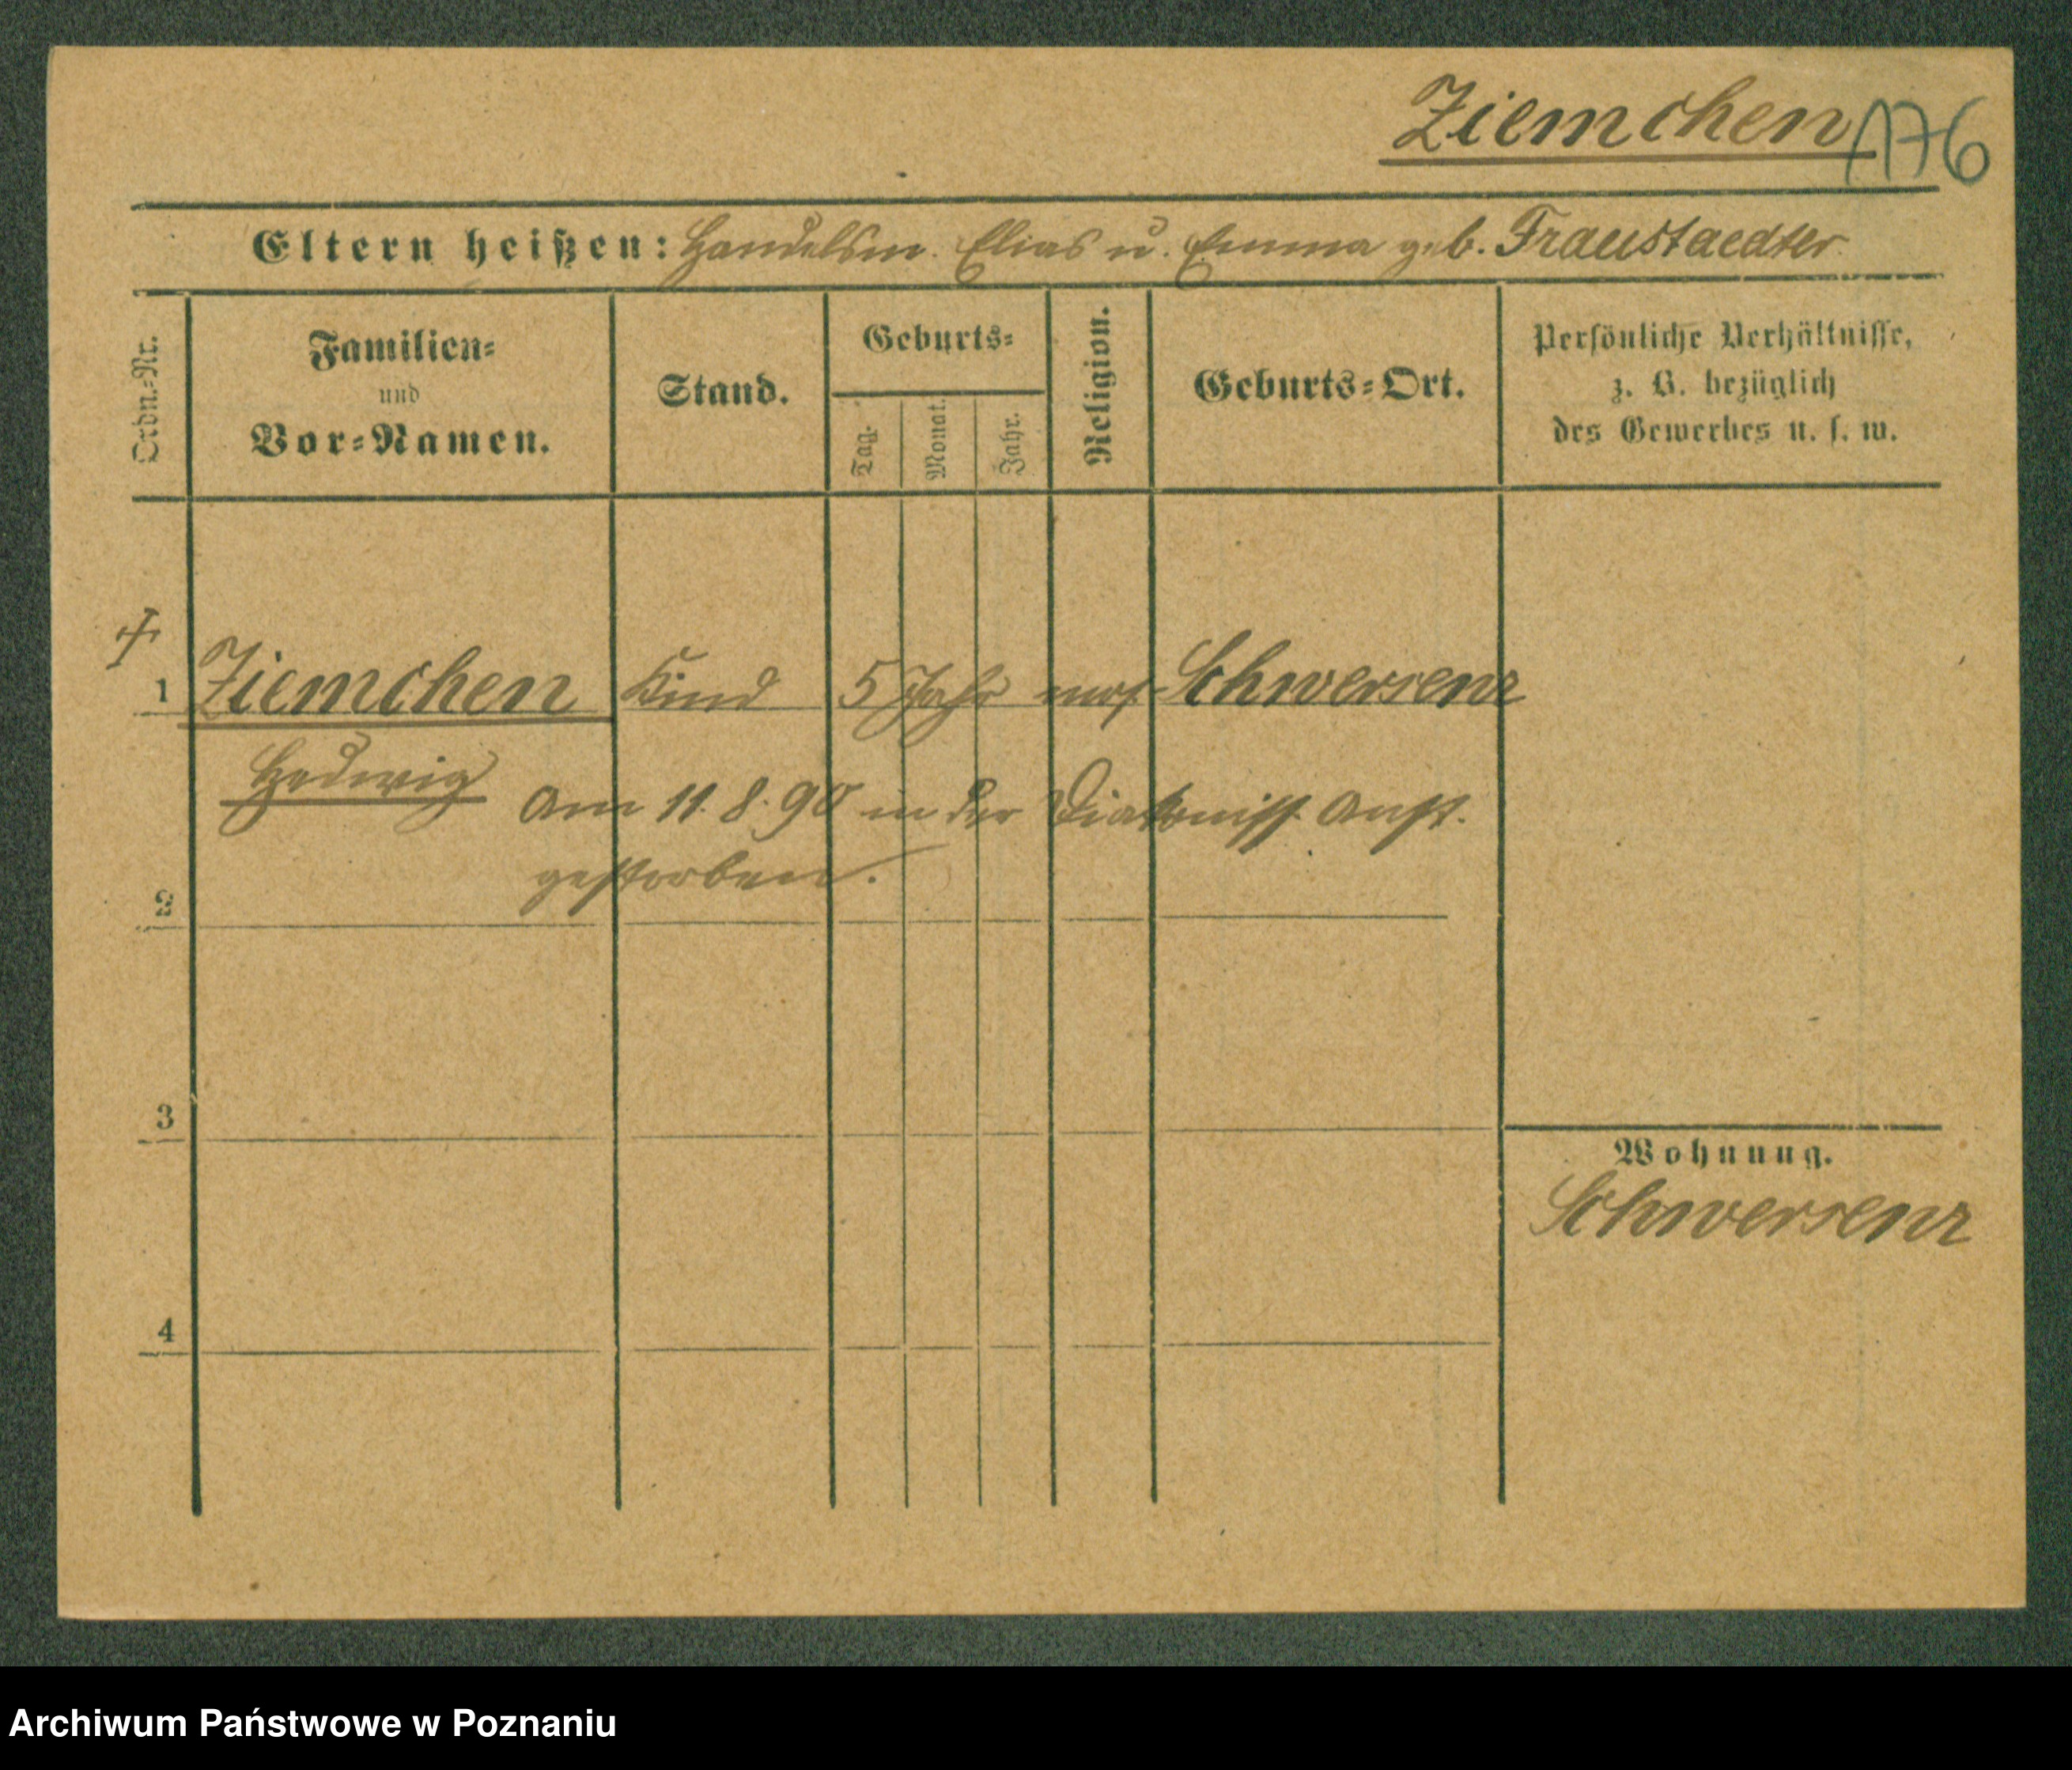 Ziemchen
176
Eltern heißen: Handelsm. Elias u. Emma geb. Fraustaedter
Ordn.-Nr.
Familien-
und
Vor-Namen.
Stand.
Geburts-
Tag.
Monat.
Jahr.
Religion.
Geburts-Ort.
Persönliche Verhältnisse,
z. B. bezüglich
des Gewerbes u. s. w.
1 Ziemchen Kind 5 Jahr mos. Schwersenz
Hedwig
am 11.8.90 in der Diakoniss. Anst.
gestorben.
2
3
Wohnung.
Schwersenz
4
Archiwum Państwowe w Poznaniu